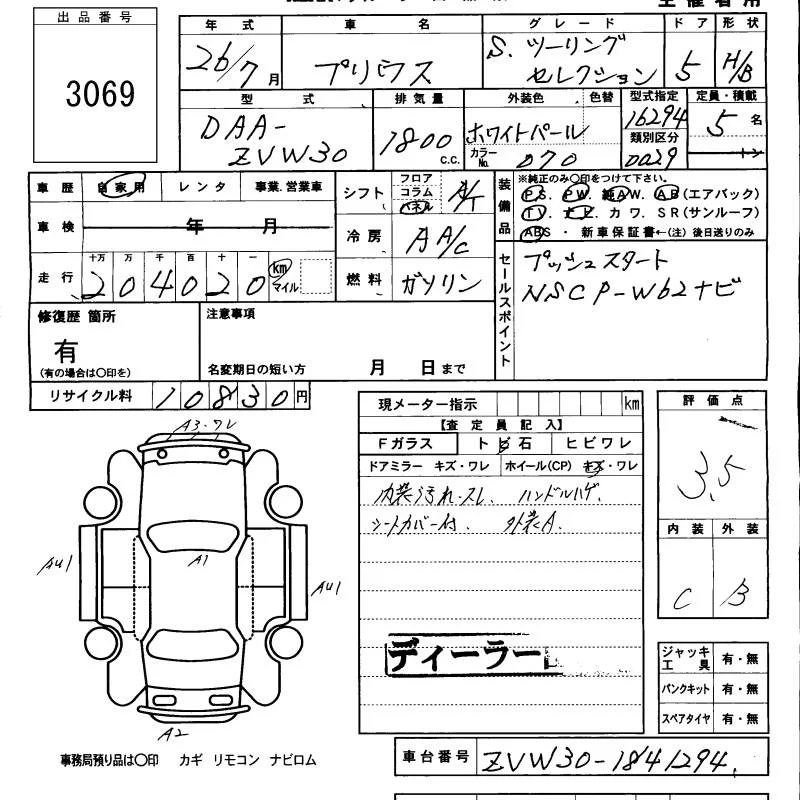 出品番号
3069
年式 車名 グレード ドア 形状
26/7月 プリウス S.ツーリング
セレクション 5 H/B
型式 排気量 外装色 色替 型式指定 定員・積載
DAA-
ZVW30 1800 C.C. ホワイトパール カラーNo. 070 16294 5名
類別区分
0029 トン
車歴 自家用 レンタ 事業.営業車
シフト フロア コラム パネル A/T
装備品
※純正のみ〇印をつけて下さい。
P.S. PW. 純AW. AB(エアバック)
TV. ナビ. カワ. SR(サンルーフ)
ABS ・ 新車保証書←(注) 後日送りのみ
車検 年 月
冷房 AA/C
走行 十万 万 千 百 十 一
204020 km マイル
燃料 ガソリン
セールスポイント
プッシュスタート
NSCP-W62ナビ
修復歴 箇所
有
(有の場合は〇印を)
注意事項
名変期日の短い方 月 日まで
リサイクル料 10830円
現メーター指示 km
【査定員記入】
Fガラス トビ石 ヒビワレ
ドアミラー キズ・ワレ ホイール(CP) キズ・ワレ
内装汚れ.スレ. ハンドルハゲ.
シートカバー付. 外装A.
ディーラー
評価点
3.5
内装 外装
C B
A3.ワレ
A1
AU1
AU1
A2
ジャッキ工具 有・無
パンクキット 有・無
スペアタイヤ 有・無
事務局預り品は〇印 カギ リモコン ナビロム
車台番号 ZVW30-1841294